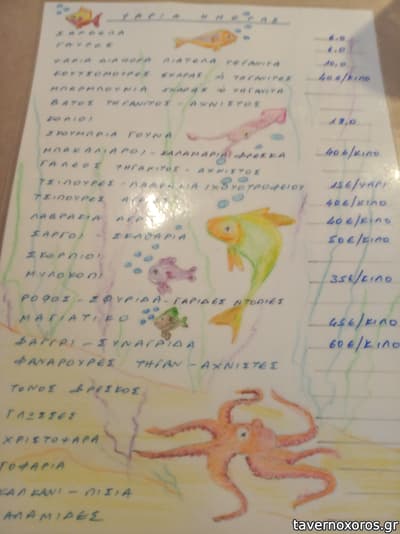 ΨΑΡΙΑ ΗΜΕΡΑΣ
ΣΑΡΔΕΛΑ 6.0
ΓΑΥΡΟΣ 6.0
ΨΑΡΙΑ ΔΙΑΦΟΡΑ ΠΙΑΤΕΛΑ ΤΕΓΑΝΙΤΑ 10,0
ΚΟΥΤΣΟΜΟΥΡΕΣ ΣΧΑΡΑΣ Ή ΤΑΓΑΝΙΤΕΣ 40€/ΚΙΛΟ
ΜΠΕΡΜΠΟΥΝΙΑ ΣΧΑΡΑΣ Ή ΤΗΓΑΝΙΤΑ
ΒΑΤΟΣ ΤΗΓΑΝΙΤΟΣ - ΑΧΝΙΣΤΟΣ
ΚΟΛΙΟΙ 18,0
ΣΚΟΥΜΠΡΙΑ ΓΟΥΝΑ
ΜΠΑΚΑΛΙΑΡΟΙ - ΚΑΛΑΜΑΡΙΑ ΦΡΕΣΚΑ 40€/ΚΙΛΟ
ΓΑΛΕΟΣ ΤΗΓΑΝΙΤΟΣ - ΑΧΝΙΣΤΟΣ
ΤΣΙΠΟΥΡΕΣ - ΙΧΘΥΟΤΡΟΦΕΙΟΥ 15€/ΨΑΡΙ
ΤΣΙΠΟΥΡΕΣ 40€/ΚΙΛΟ
ΛΑΒΡΑΚΙΑ 40€/ΚΙΛΟ
ΣΑΡΓΟΙ ΣΚΑΘΑΡΙΑ 50€/ΚΙΛΟ
ΣΚΟΡΠΙΟΙ
ΜΥΛΟΚΟΠΙ 35€/ΚΙΛΟ
ΡΟΦΟΣ - ΣΦΥΡΙΔΑ - ΓΑΡΙΔΕΣ ΝΤΟΠΙΕΣ
ΜΑΓΙΑΤΙΚΟ 45€/ΚΙΛΟ
ΦΑΓΓΡΙ - ΣΥΝΑΓΡΙΔΑ 60€/ΚΙΛΟ
ΦΑΝΑΡΟΥΡΕΣ ΤΗΓΑΝ - ΑΧΝΙΣΤΕΣ
ΤΟΝΟΣ ΦΡΕΣΚΟΣ
ΓΛΩΣΣΕΣ
ΧΡΙΣΤΟΨΑΡΑ
ΓΟΦΑΡΙΑ
ΚΑΛΚΑΝΙ - ΠΙΣΙΑ
ΠΑΛΑΜΙΔΕΣ
tavernoxoros.gr